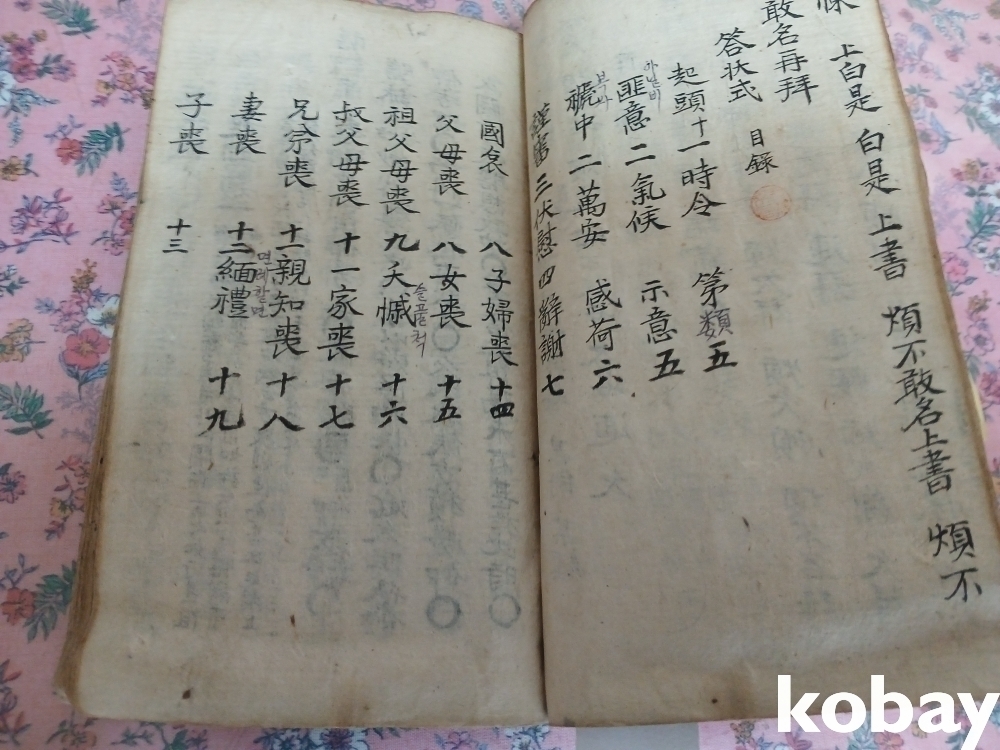 上白是 白是 上書 煩不敢名上書 煩不
敢名再拜
答狀式 目錄
起頭 十一時令 第五
類
匪意 二氣候 示意 五
아닐비
褫中 二萬安 感荷 六
三伏慰 四辭謝 七
國哀 八子婦喪 十四
父母喪 八女喪 十五
祖父母喪 九夭慽 十六
슬프플척
叔父母喪 十一家喪 十七
兄弟喪 十一親知喪 十八
妻喪 十二緬禮 十九
면례할면
子喪 十三
kobay